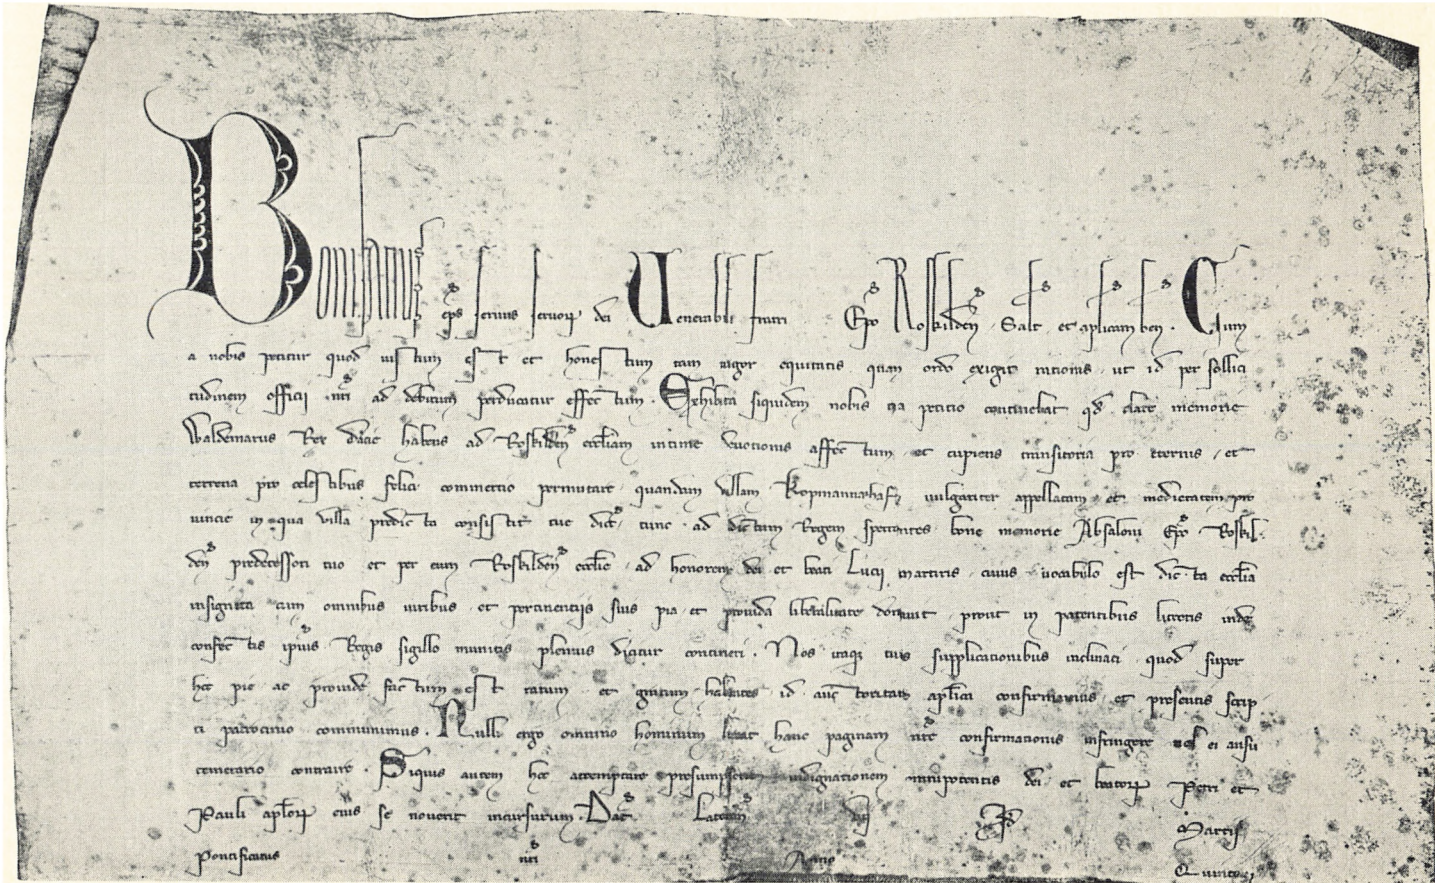 Bonifatius ep̄s seruus seruoꝝ dei Uenerabili fratri Ep̄o Roskilden̄ . Salt̄ . et aplicam ben̄ . Cum
a nobis petitur quod iustum est et honestum tam uigor equitatis quam ordo exigit rationis . ut id per sollici
tudinem officij nr̄i ad debitum perducatur effectum . Exhibita siquidem nobis tua petitio continebat qd̄ clare memorie
Waldemarus Rex Dacie habens ad Roskilden̄ eccl̄iam intime deuotionis affectum . et cupiens transitoria pro eternis . et
terrena pro celestibus felici commertio permutare quandam uillam Kopmannahafn̄ uulgariter appellatam et medietatem pro
uincie in qua uilla predicta consistit tue dioc̄ tunc ad dictum Regem spectantes bone memorie Absaloni Ep̄o Roskil
den̄ predecessori tuo et per eum Roskilden̄ eccl̄ie ad honorem dei et beati Lucij martiris . cuius uocabulo est dicta eccl̄ia
insignita cum omnibus iuribus et pertinentijs suis pia et prouida liberalitate donauit prout in patentibus litteris inde
confectis ipius Regis sigillo munitis plenius dicitur contineri . Nos itaqꝫ tuis supplicationibus inclinati quod super
hoc pie ac prouide factum est ratum et gratum habentes id auctoritate apl̄ica confirmamus et presentis scrip
ti patrocinio communimus . Nulli ergo omnino hominum liceat hanc paginam nr̄e confirmationis infringere uel ei ausu
temerario contraire . Siquis autem hoc attemptare presumpserit indignationem omnipotentis dei et beatoꝝ Petri et
Pauli apl̄oꝝ eius se nouerit incursurum . Dat̄ Lateran̄ Martij
Pontificatus nr̄i Anno Quinto